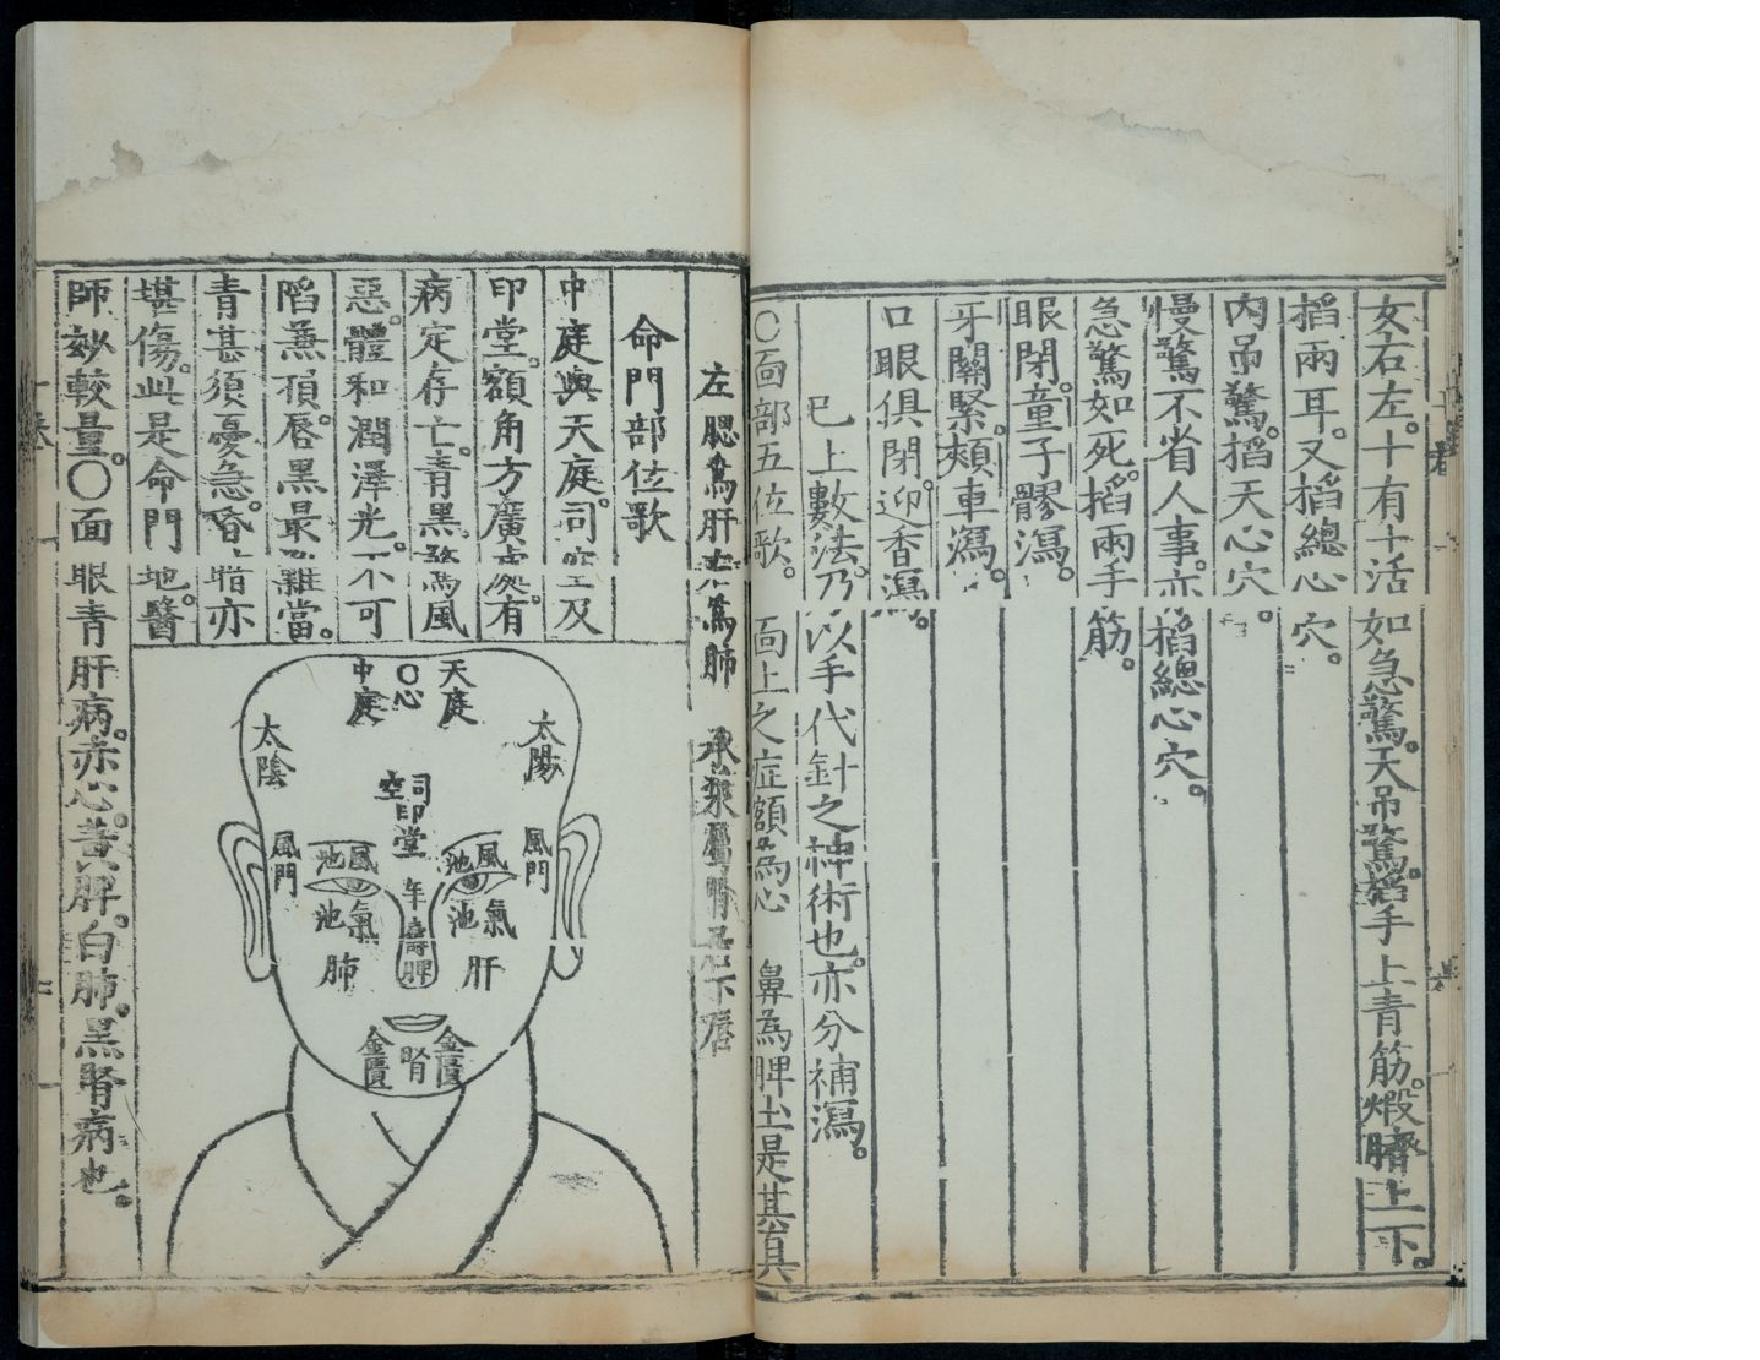 女右左。十有十活如急驚。天吊驚。掐手上青筋。煅臍上下。
掐兩耳。又掐總心穴。
內吊驚。掐天心穴。
慢驚不省人事。亦掐總心穴。
急驚如死。掐兩手筋。
眼閉。童子髎瀉。
牙關緊。頰車瀉。
口眼俱閉。迎香瀉。
巳上數法。乃以手代針之神術也。亦分補瀉。
〇面部五位歌。面上之症額為心 鼻為脾土是其真
左腮為肝右為肺 承漿屬腎居下唇
命門部位歌
中庭與天庭。司空及
印堂。額角方廣處。有
病定存亡。青黑驚風
惡。體和潤澤光。不可
陷兼損。唇黑最難當。
青甚須憂急。昏暗亦
堪傷。此是命門地。醫
師妙較量。〇面眼青肝病。赤心。黃脾。白肺。黑腎病也。
天庭
〇心
中庭
太陽
太陰
司空
印堂
風門
風池
風池
風門
年壽
氣池
氣池
肝
脾
肺
金匱
腎
金匱